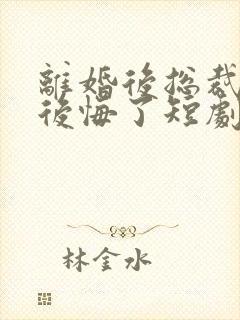 離婚後総裁
後悔了短劇
林金水